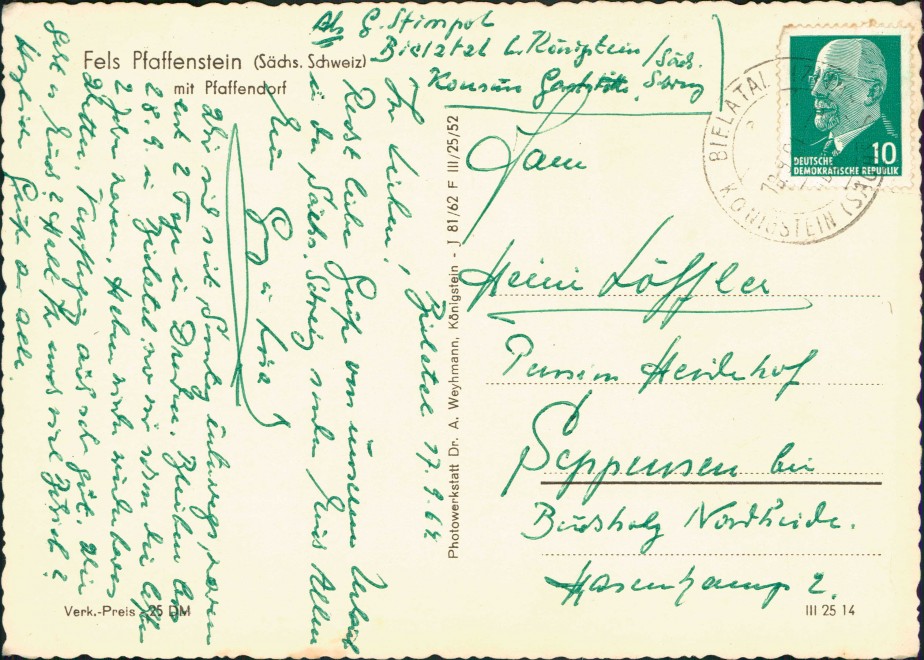 Abs. E. Stimpel
Bielatal b. Königstein / Sächs.
Konsum Gaststätte, Schweiz
Fels Pfaffenstein (Sächs. Schweiz)
mit Pfaffendorf
BIELATAL
KÖNIGSTEIN (SÄCHS
DEUTSCHE
DEMOKRATISCHE REPUBLIK
10
Fam
Heini Löffler
Pension Heidehof
Seppensen bei
Buchholz Nordheide.
Hasenkamp 2.
Bielatal 17.9.64
Ihr Lieben!
Recht liebe Grüße von unserem Urlaub
in der Sächs. Schweiz senden Euch Allen
Wir sind seit Sonntag unterwegs, waren
erst 2 Tage in Dresden. Bleiben bis
28.9. in Bielatal wo wir schon die letzten
2 Jahre waren. Haben wunderbares
Wetter. Verpflegung auch sehr gut. Wie
geht es Euch? Habt Ihr noch viel Betrieb?
Grüße an alle.
Photowerkstatt Dr. A. Weyhmann, Königstein - J 81/62 F III/25/52
Verk.-Preis -25 DM
III 25 14